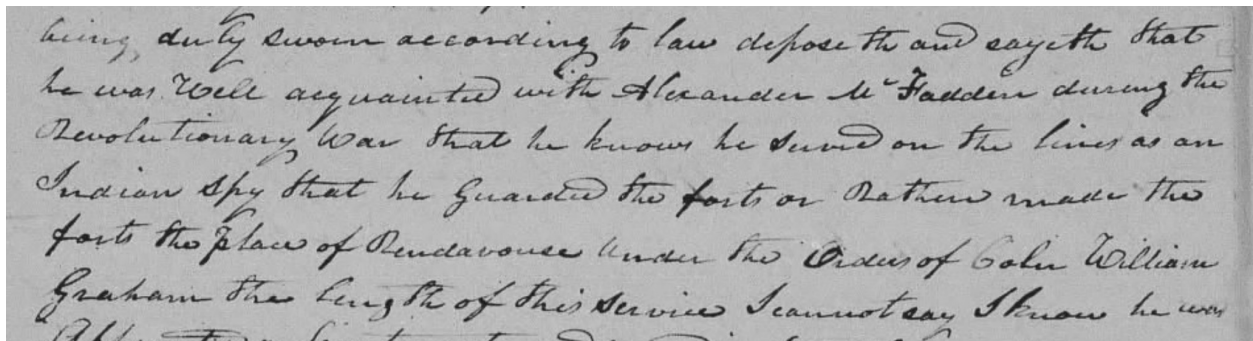 being duly sworn according to law deposeth and sayeth that
he was Well acquainted with Alexander McFadden during the
Revolutionary War that he knows he served on the lines as an
Indian Spy that he Guarded the forts or Rather made the
forts the place of Rendavouse Under the Orders of Coln William
Graham the length of this service I cannot say I know he was